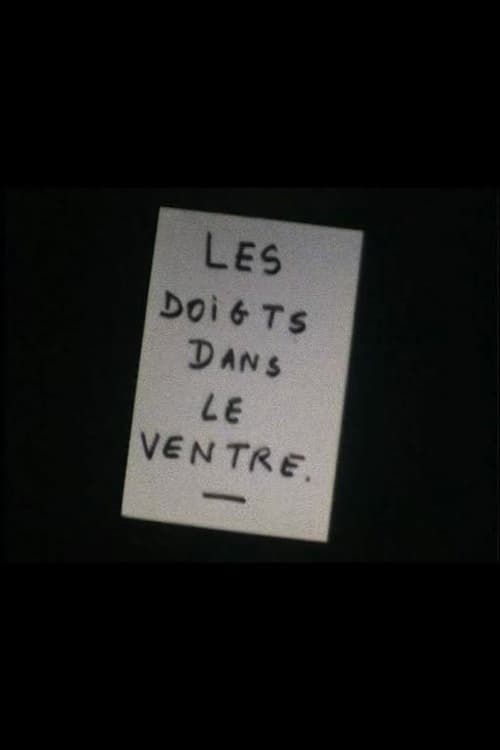 LES
DOiGTS
DANS
LE
VENTRE.